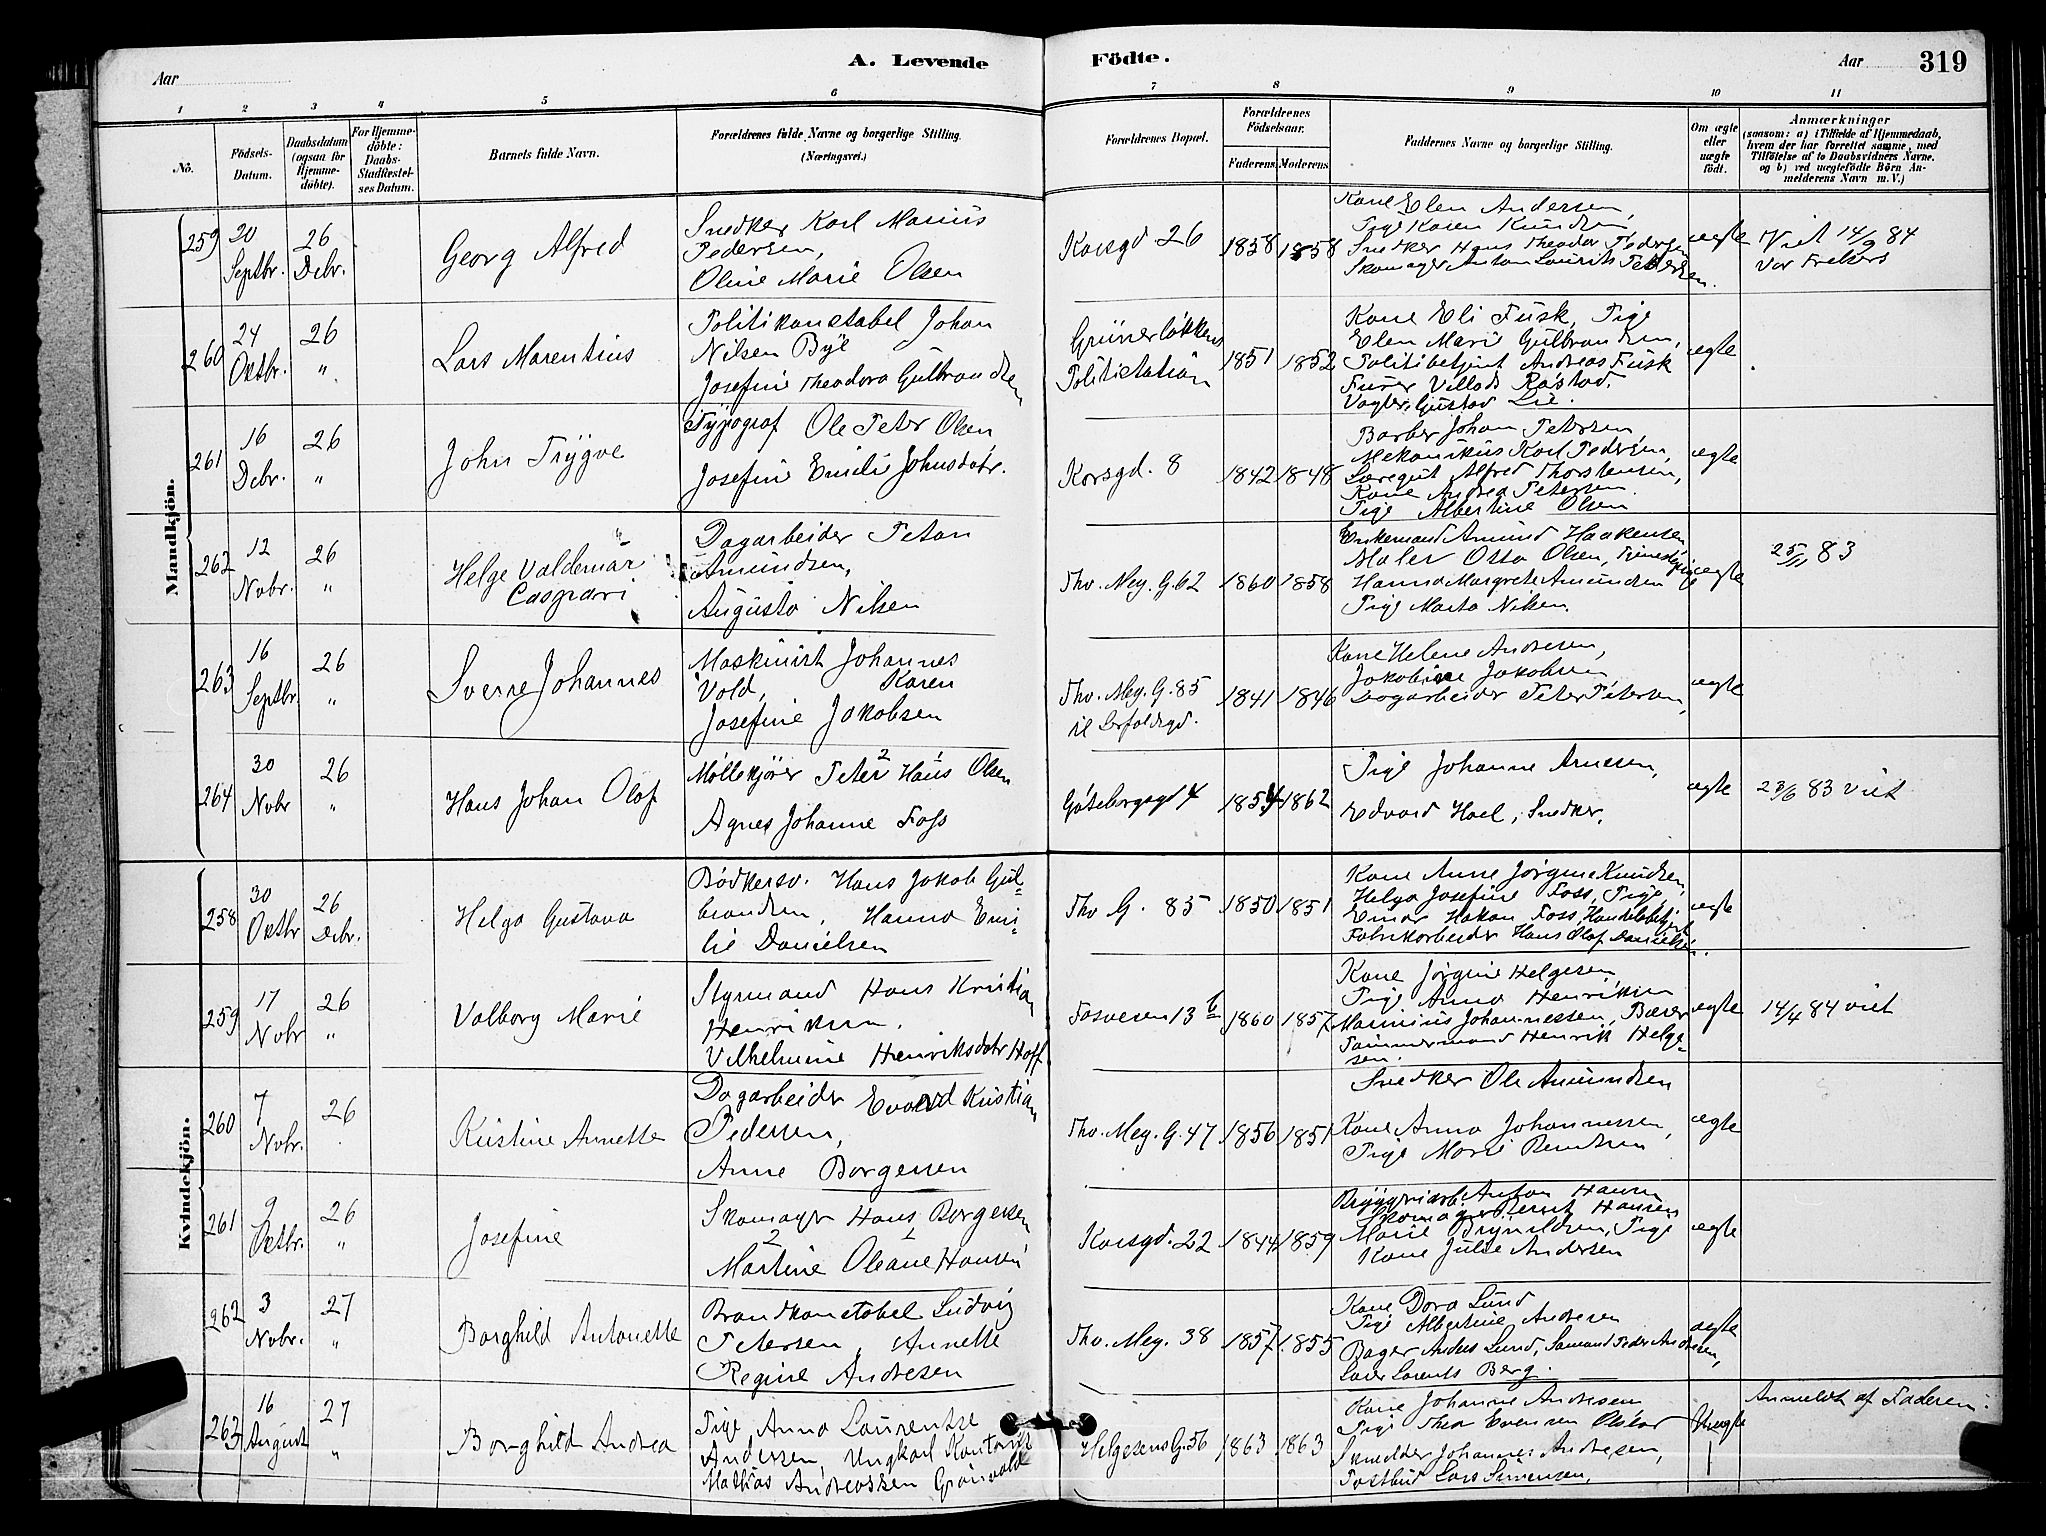 Aar
A. Levende
Födte.
Aar
319
1 2 3 4 5 6 7 8 9 10 11
No.
Födsels-Datum.
Daabsdatum (ogsaa for Hjemme-döbte).
For Hjemme-döbte: Daabs-Stadfæstel-ses Datum.
Barnets fulde Navn.
Forældrenes fulde Navne og borgerlige Stilling.
(Næringsvei.)
Forældrenes Bopæl.
Forældrenes Födselsaar.
Faderens. Moderens.
Faddernes Navne og borgerlige Stilling.
Om ægte eller uægte födt.
Anmærkninger
(saasom: a) i Tilfælde af Hjemmedaab, hvem der har forrettet samme, med Tilföielse af to Daabsvidners Navne. og b) ved uægtefödte Börn An-melderens Navn m. V.)
Mandkjön.
259
20 Septbr.
26 Debr.
Georg Alfred
Snedker Karl Marius
Pedersen,
Oline Marie Olsen
Korsgd 26
1858 1858
Kone Elen Andersen,
Pige Karen Knudsen
Snedker Hans Theodor Pedersen
Skomager Anton Laurits Pedersen.
ægte
Viet 14/9 84
Vor Frelsers
260
24 Oktbr.
26 "
Lars Marentius
Politikonstabel Johan
Nilsen Bye
Josefine Theodora Gulbrandsen
Grünerløkkens
Politistation
1851 1852
Kone Eli Fusk, Pige
Elen Marie Gulbrandsen,
Politibetjent Andreas Fusk
Furer Villads Råstad.
Vagter, Gustav Lie.
ægte
261
16 Debr.
26 "
John Trygve
Typograf Ole Peter Olsen
Josefine Emilie Johnsdatr.
Korsgd. 8
1842 1848
Barber Johan Petersen
Mekanikus Karl Pedersen,
Læregut Alfred Thorstensen,
Kone Andrea Petersen.
Pige Albertine Olsen
ægte
262
12 Nobr.
26 "
Helge Valdemar
Caspari
Dagarbeider Petan
Amundsen,
Augusta Nilsen
Thv. Mey. G. 62
1860 1858
Enkemand Amund Haakensen
Maler Otto Olsen, Tjenestepige
Hanna Margrete Amundsen
Pige Marta Nilsen.
ægte
25/11 83
263
16 Septbr.
26 "
Sverre Johannes
Maskinist Johannes
Vold, Karen
Josefine Jakobsen
Thv. Mey. G. 85
1841 1846
Kone Helene Andresen,
Jakobine Jakobsen
Dagarbeider Peter Petersen,
ægte
264
30 Nobr
26 "
Hans Johan Olaf
Møllekjører Peter 2 Hans 1 Olsen
Agnes Johanne Foss
Gøteborgsgd 4
1854 1862
Pige Johanne Arnesen,
Edvard Hoel, Snedker.
ægte
23/6 83 viet
Kvindekjön.
258
30 Oktbr
26 Debr.
Helga Gustava
Bødkersv. Hans Jakob Gul-
brandsen, Hanna Emi-
lie Danielsen
Thv G. 85
1850 1851
Kone Anne Jørgine Knudsen,
Helga Josefine Foss, Pige,
Einar Hakon Foss, Handelsbetjent
Fabrikarbeider Hans Olaf Danielsen.
ægte
259
17 Nobr
26 "
Valborg Marie
Styrmand Hans Kristian
Henriksen.
Vilhelmine Henriksdatr Hoff
Fosveien 13 b
1860 1857
Kone Jørgine Helgesen
Pige Anna Henriksen
Marinius Johannessen, Bærer
Tømmermand Henrik Helge-
sen.
ægte
14/4 84 viet
260
7 Nobr.
26
Kristine Annette
Dagarbeider Evard Kristian
Pedersen,
Anne Borgersen
Thv. Mey. G. 47
1856 1851
Snedker Ole Amundsen
Kone Anna Johannessen,
Pige Marie Berntsen
ægte
261
9 Oktbr.
26 "
Josefine
Skomager Hans Borgersen
Martine Oleane Hansen
Korsgd. 22
1844 1859
Anton Hansen
Skomager Bernt Hansen
Marie Brynildsen, Pige
Kone Julie Andersen
ægte
262
3 Nobr.
27 "
Borghild Antonette
Brandkonstabel Ludvig
Petersen, Annette
Regine Andresen
Thv. Mey. 38
1857 1855
Kone Dora Lund
Pige Albertine Andresen
Bager Anders Lund, Sømand Peder Andresen,
Lorents Berg.
ægte
263
16 August
27 "
Borghild Andrea
Pige Anna Laurentse
Andersen, Ungkarl Kontorist
Mathias Andreassen Grønvold
Helgesens G. 56
1863 1863
Kone Johanne Andresen
Pige Thea Evensen Oskar
Smelder Johannes Andresen,
Postbud Lars Simensen,
Uægte
Anmeldt af Faderen.